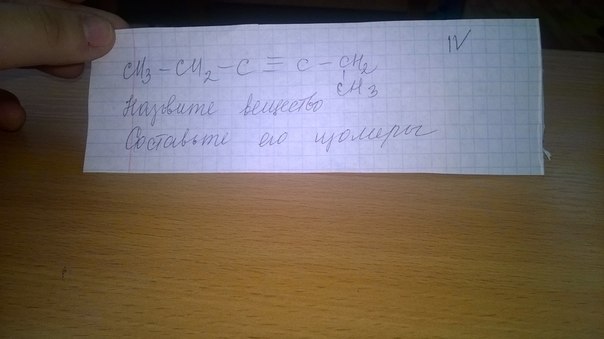 IV
CH3 – CH2 – C ≡ C – CH2
CH3
Назовите вещество
Составьте его изомеры